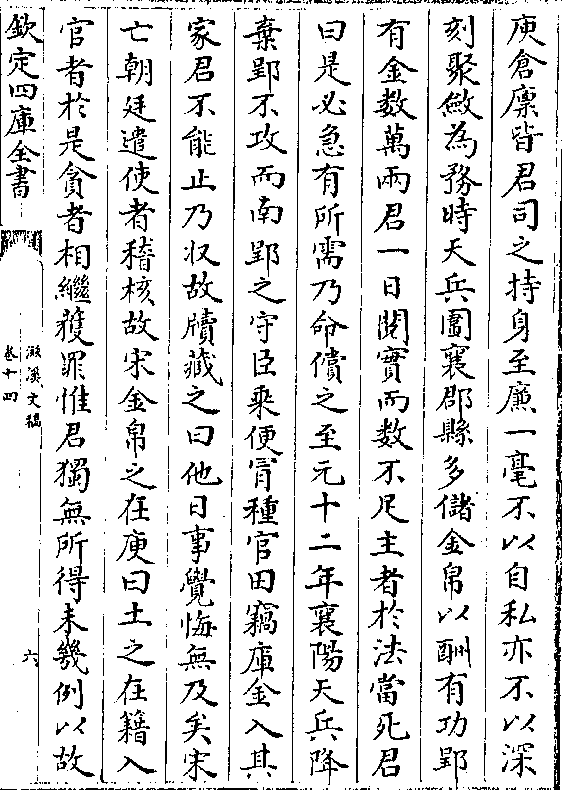 庾倉廪皆君司之持身至廉一毫不以自私亦不以深
刻聚斂為務時天兵圍襄郡縣多儲金帛以酬有功郢
有金數萬兩君一日閱實而數不足主者於法當死君
曰是必急有所需乃命償之至元十二年襄陽天兵降
棄郢不攻而南郢之守臣乘便冐種官田竊庫金入其
家君不能止乃収故牘藏之曰他日事覺悔無及矣宋
亡朝廷遣使者稽核故宋金帛之在庾曰土之在籍入
官者於是貪者相繼獲罪惟君獨無所得未幾例以故
欽定四庫全書
淵溪文稿
卷十四
六